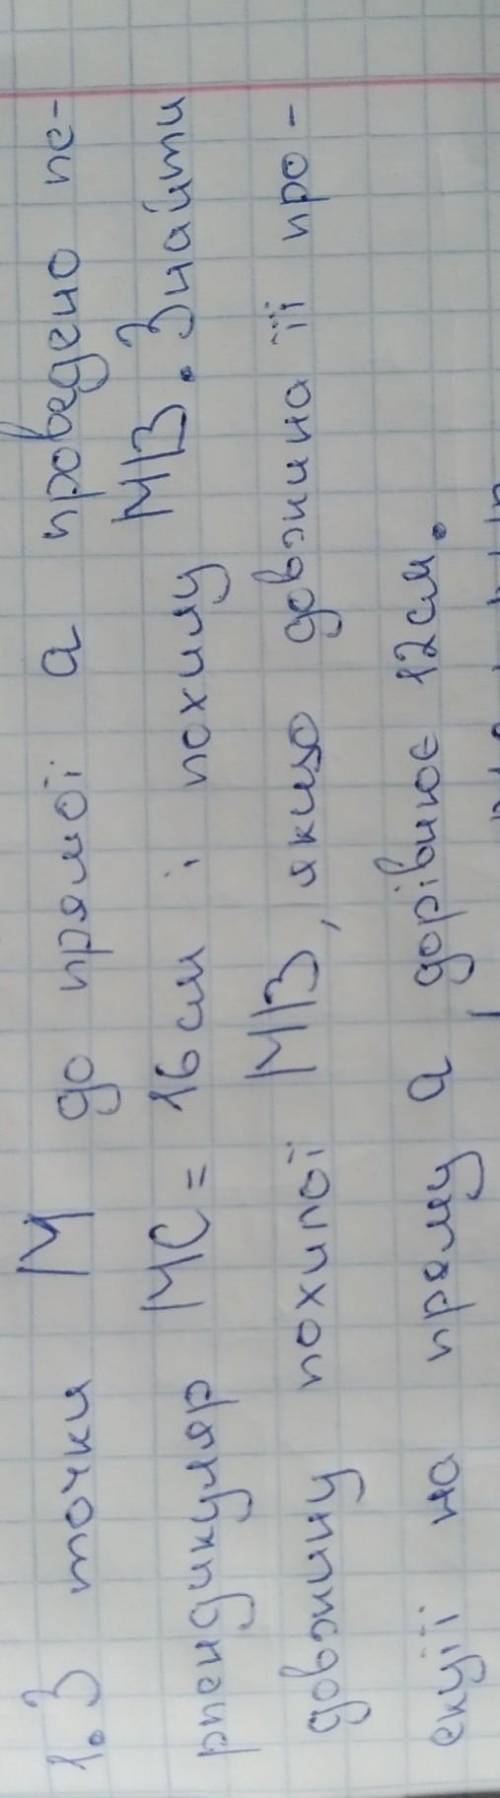 1. З точки М до прямої а проведено пе-
рпендикуляр МС = 16 см і похилу МВ. Знайти
довжину похилої МВ, якщо довжина її про-
екції на пряму а дорівнює 12 см.